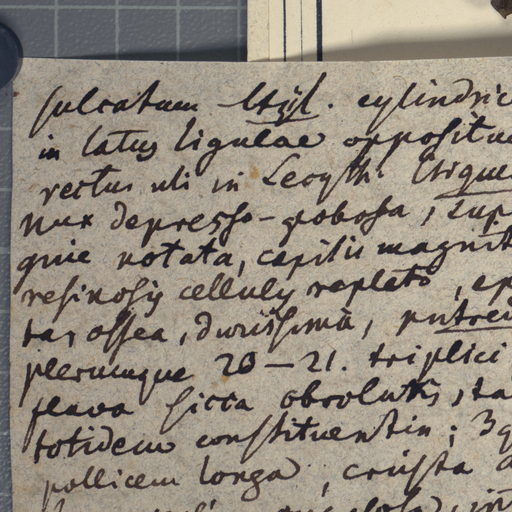 sulcatum Styl. cylindric
in latus ligulae oppositu
rectus uti in Lecyth.
Nux depresso-globosa, sup
que notata, capitis magnit
resinosis cellulis repleto, ep
tar ossea, durissima, putre
plerumque 20-21. triplici
flava sicca obvolutis, ta
totidem constituentia; 3q
pollicem longa, crusta a